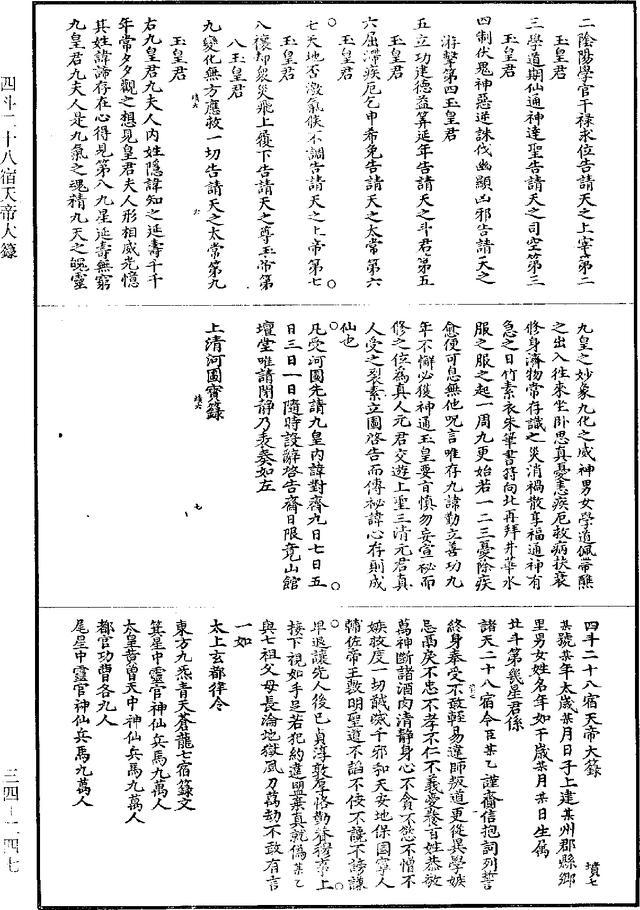 二陰陽學官干祿求位告請天之上宰第二
玉皇君
三學道期仙通神達聖告請天之司空第三
玉皇君
四制伏鬼神惡逆誅伐幽顯凶邪告請天之
游擊第四玉皇君
五立功建德益筭延年告請天之斗君第五
玉皇君
六屈滯疾厄乞申希免告請天之太常第六
玉皇君
七天地否激氣候不調告請天之上帝第七
玉皇君
八禳却災飛上履下告請天之尊玉帝第
八玉皇君
九變化無方應救一切告請天之太常第九
玉皇君
右九皇君九夫人內姓隱諱知之延壽千千
年常夕夕觀之想見皇君夫人形相威光憶
其姓諱諦存在心得見第八九星延壽無窮
九皇君九夫人是九氣之魂精九天之魄靈
九皇之妙象九化之威神男女學道佩帶醮
之出入往來坐卧思真憂恚疾厄救病扶衰
修身濟物常存識之災消禍散享福通神有
急之日竹素衣朱筆書符向北再拜井華水
服之服之起一周九更始若一二三憂除疾
愈便可息無他呪言唯存九諱勤立善功九
年不懈必獲神通玉皇要言慎勿妄宣秘而
修之位爲真人元君交遊上聖三清元君真
人受之裂素立圖啓告而傳祕諱心存則成
仙也
凡受河圖先請九皇內諱對齋九日七日五
日三日一日隨時設辭啓告齋日限竟山館
壇堂唯請閑静乃表奏如左
上清河圖寶籙
四斗二十八宿天帝大籙
某號某年太歲某月日子上建某州郡縣鄉
里男女姓名年如干歲某月某日生屬
北斗第幾星君係
諸天二十八宿令臣某乙謹齋信抱詞列誓
終身奉受不敢輕易違師叛道更從異學嫉
忌高戾不忠不孝不仁不義愛養百姓恭敬
萬神斷諸酒肉清静身心不貪不慾不憎不
嫉救度一切誠滅千邪和天安地保國寧人
輔佐帝王敷明聖道不諂不佞不讒不謗謙
卑退讓先人後已貞淳敦厚恪勤奉上
接下視如手足若犯約違盟棄真就偽某乙
與七祖父母長淪地獄風刀萬劫不敢有言
一如
太上玄都律令
東方九炁青天蒼龍七宿籙文
箕星中靈官神仙兵馬九萬人
太皇黄曾天中神仙兵馬九萬人
都官功曹各九人
尾星中靈官神仙兵馬九萬人
四斗二十八宿天帝大籙
三四—二四七